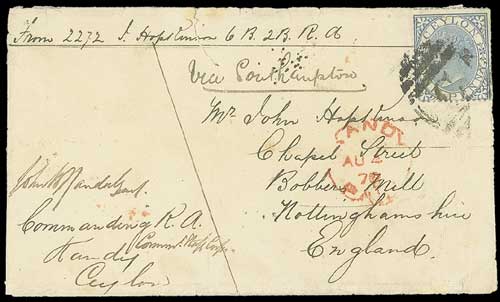 From 2272 J. Hopkinson 6 B. 2B. R. A
CEYLON
Via Southampton
Mr John Hopkinson
Chapel Street
Bobbers Mill
Nottinghamshire
England.
KANDY
AU 4
Commanding R. A.
Kandy
Ceylon